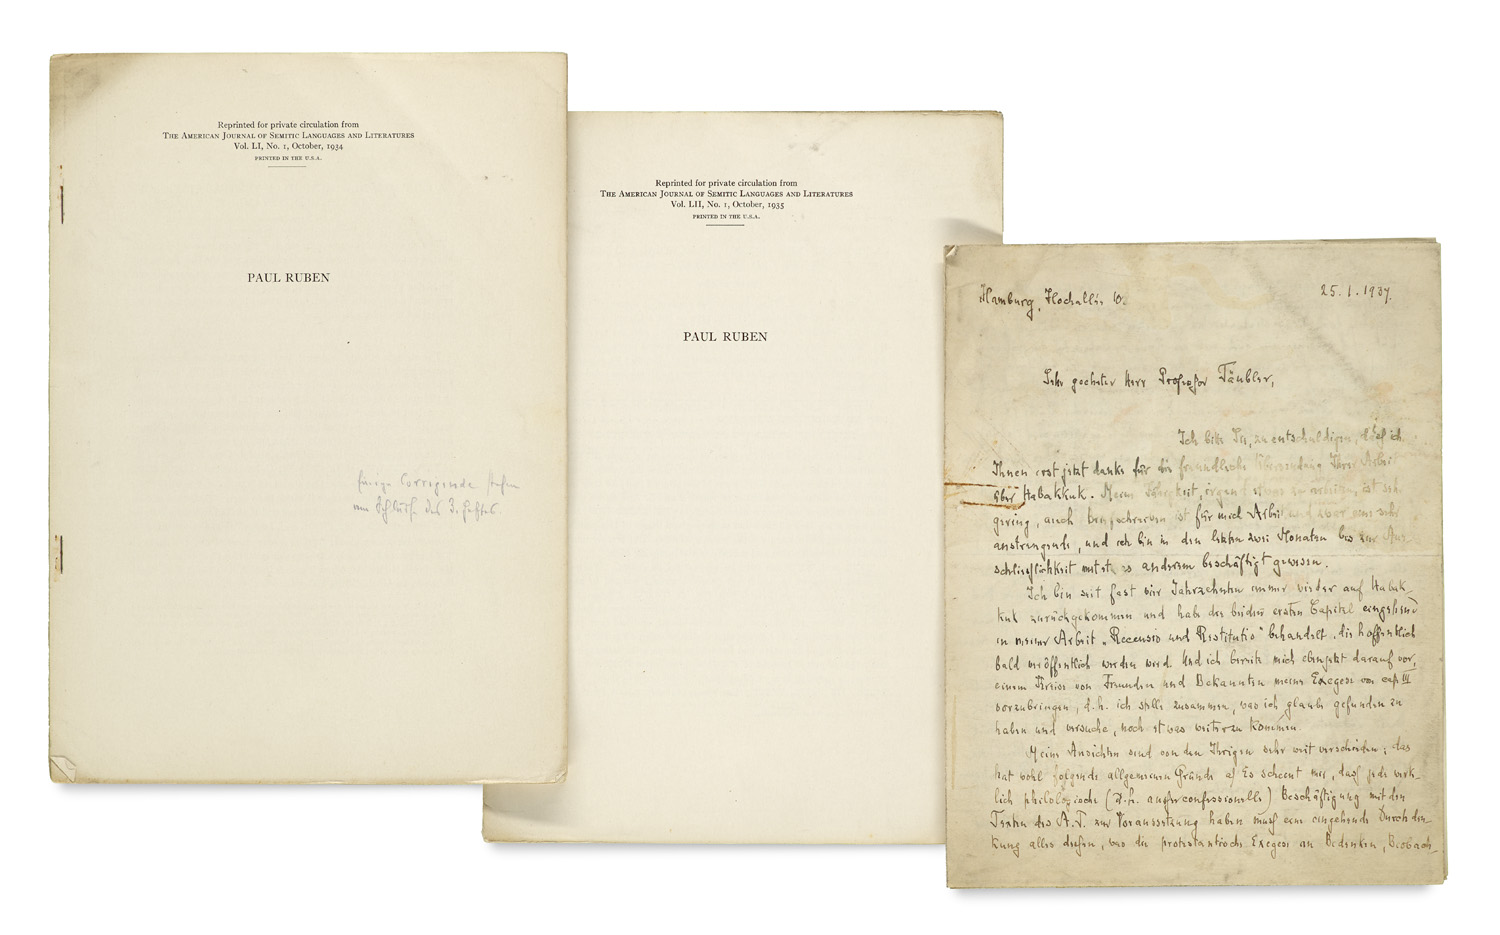 Reprinted for private circulation from
THE AMERICAN JOURNAL OF SEMITIC LANGUAGES AND LITERATURES
Vol. LI, No. 1, October, 1934
PRINTED IN THE U.S.A.
PAUL RUBEN
Einige Corrigenda stehen
am Schlusse des 3. Heftes.
Reprinted for private circulation from
THE AMERICAN JOURNAL OF SEMITIC LANGUAGES AND LITERATURES
Vol. LII, No. 1, October, 1935
PRINTED IN THE U.S.A.
PAUL RUBEN
Hamburg, Hochallee
25.1.1937.
Sehr geehrter Herr Professor Täubler,
Ich bitte Sie, zu entschuldigen, daß ich
Ihnen erst jetzt danke für die freundliche Übersendung Ihrer Arbeit
über Habakkuk. Meine Fähigkeit, irgend etwas zu arbeiten, ist sehr
gering, auch ist für mich Arbeit und zwar eine sehr
anstrengende, und ich bin in den letzten zwei Monaten bis zur Aus-
schließlichkeit mit anderem beschäftigt gewesen.
Ich bin seit fast vier Jahrzehnten immer wieder auf Habak-
kuk zurückgekommen und habe die beiden ersten Capitel eingehend
in meiner Arbeit „Recensio und Restitutio" behandelt, die hoffentlich
bald veröffentlich werden wird. Und ich bereite mich ebenjetzt darauf vor,
einem Kreise von Freunden und Bekannten meine Exegese von cap III
vorzubringen, d.h. ich stelle zusammen, was ich glaube gefunden zu
haben und versuche, noch etwas weiter zu kommen.
Meine Ansichten sind von den Ihrigen sehr weit verschieden; das
hat wohl folgende allgemeinen Gründe Es scheint mir, daß jede wirk-
lich philologische (d.h. außerconfessionelle) Beschäftigung mit den
Texten des A.T. zur Voraussetzung haben muß eine eingehende Durchden-
kung alles dessen, was die protestantische Exegese an Bedenken, Beobach-